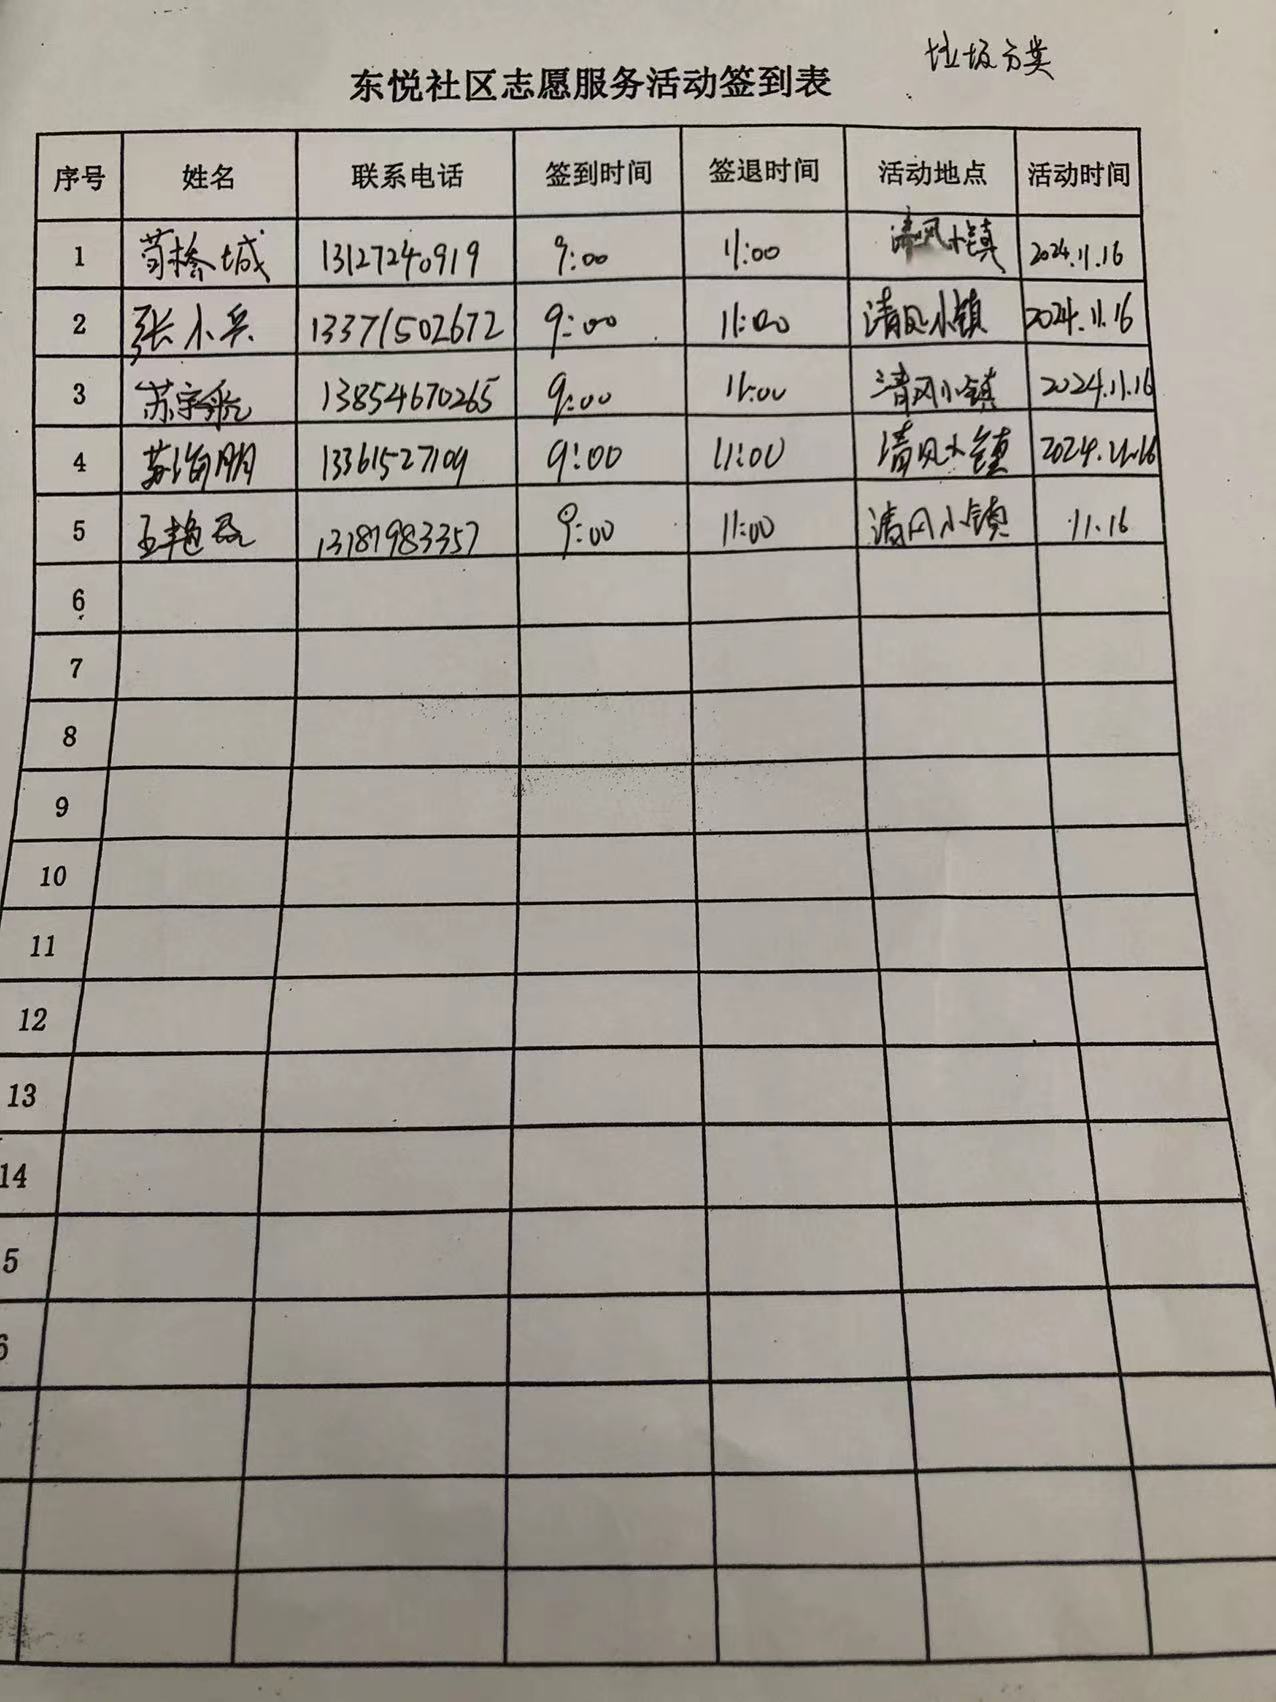 垃圾分类
东悦社区志愿服务活动签到表
序号 姓名 联系电话 签到时间 签退时间 活动地点 活动时间
1 13127240919 9:00 11:00 清风小镇 2024.11.16
2 张小兵 13371502672 9:00 11:00 清风小镇 2024.11.16
3 苏宇航 13854670265 9:00 11:00 清风小镇 2024.11.16
4 苏海朋 13361527109 9:00 11:00 清风小镇 2024.11.16
5 王艳磊 13181983357 9:00 11:00 清风小镇 11.16
6
7
8
9
10
11
12
13
14
5
6